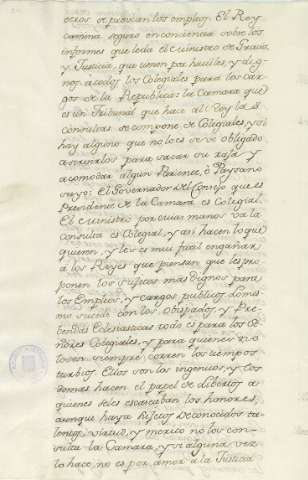 otros se provean los empleos. El Rey
camina seguro en conciencia sobre los
informes que le da el Ministro de Gracia,
y Justicia, que tienen por haviles, y dig-
nos á todos los Colegiales para los car-
gos de la Republica: la Camara que
es un Tribunal que hace al Rey la
consultas se compone de Colegiales, y si
hay alguno que no lo es se ve obligado
a servirlos para sacar su raja y
acomodar algun Pariente, ò Paysano
suyo: El Governador del Consejo que es
Presidente de la Camara es Colegial.
El Ministro por cuias manos va la
consulta es Colegial, y asi hacen lo que
quieren, y les es mui facil engañar
a los Reyes que piensen que les pro-
ponen los sugetos mas dignos para
los Empleos, y cargos publicos. Lo mis-
mo sucede con los Obispados, y Pre-
bendas Eclesiasticas todo es para los Se-
ñores Colegiales, y para quienes no
lo son siempre corren los tiempos
turbios. Ellos son los ingenios, y los
demas hacen el papel de
quienes se les escaseban los honores,
aunque haya sugetos de conocidos ta-
lentos, virtud, y merito no los con-
sulta la Camara, y si alguna vez
lo hace, no es por amor a la Justicia